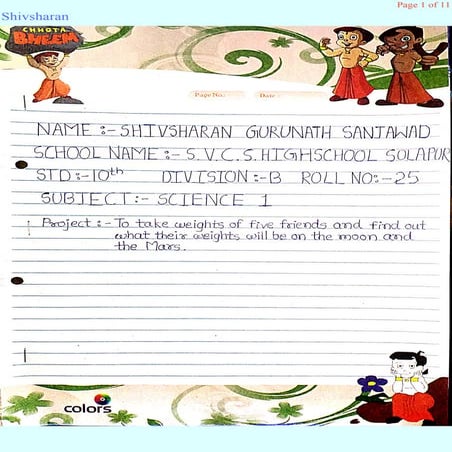 Shivsharan
Page 1 of 11
CHHOTA
BHEEM
Page No.: Date:
NAME :- SHIVSHARAN GURUNATH SANJAWAD
SCHOOL NAME :- S.V.C.S. HIGHSCHOOL SOLAPUR
STD :- 10th DIVISION :- B ROLL NO :- 25
SUBJECT :- SCIENCE 1
Project :- To take weights of five friends and find out
what their weights will be on the moon and
the Mars.
colors